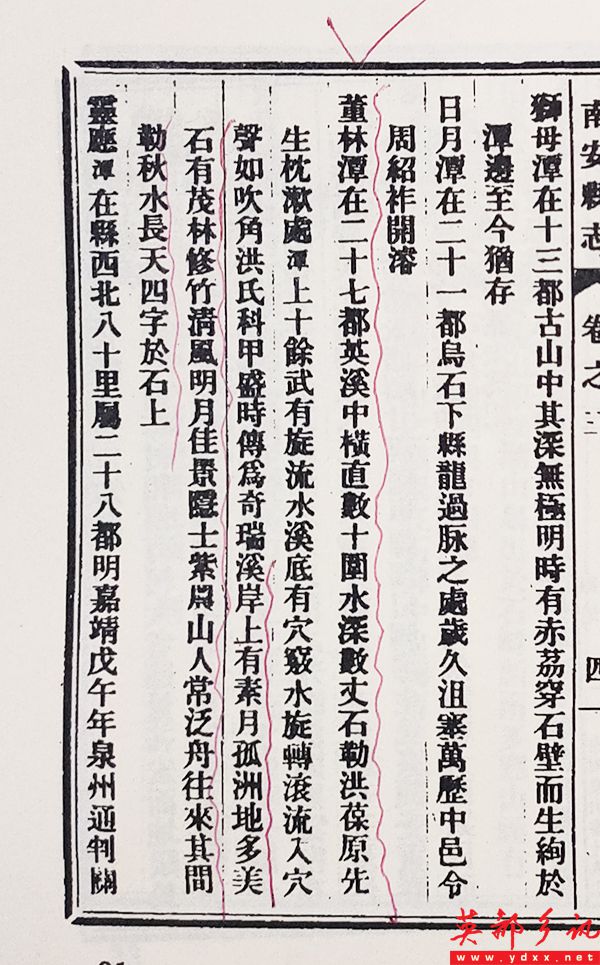 南安縣志
卷之二
四
獅母潭在十三都古山中其深無極明時有赤荔穿石壁而生絢於
潭邊至今猶存
日月潭在二十一都烏石下縣龍過脉之處歲久沮塞萬歷中邑令
周紹祚開濬
董林潭在二十七都英溪中橫直數十圍水深數丈石勒洪葆原先
生枕漱處潭上十餘武有旋流水溪底有穴竅水旋轉滾流入穴
聲如吹角洪氏科甲盛時傳為奇瑞溪岸上有素月孤洲地多美
石有茂林修竹清風明月佳景隱士紫山人常泛舟往來其間
勒秋水長天四字於石上
靈應潭在縣西北八十里屬二十八都明嘉靖戊午年泉州通判關
英都乡讯
www.ydxx.net